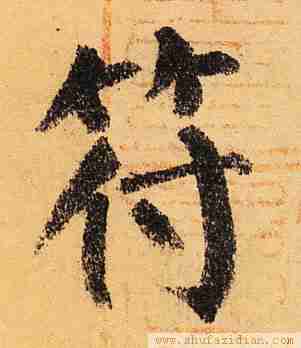 符
www.shufazidian.com